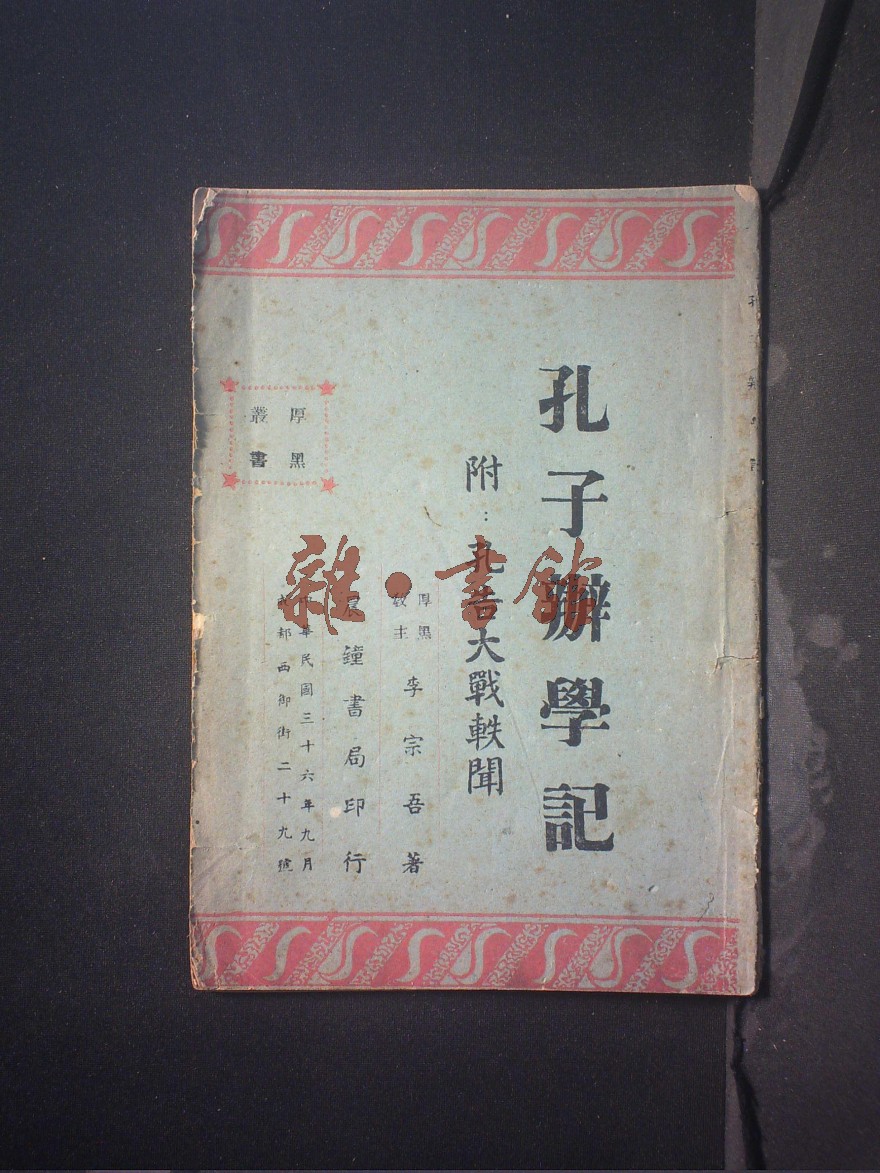 孔子辦學記
附：孔告大戰軼聞
厚黑
教主
李宗吾著
晨鐘書局印行
中華民國三十六年九月
成都西御街二十九號
厚黑
叢書
雜·書館
孔子辦學記